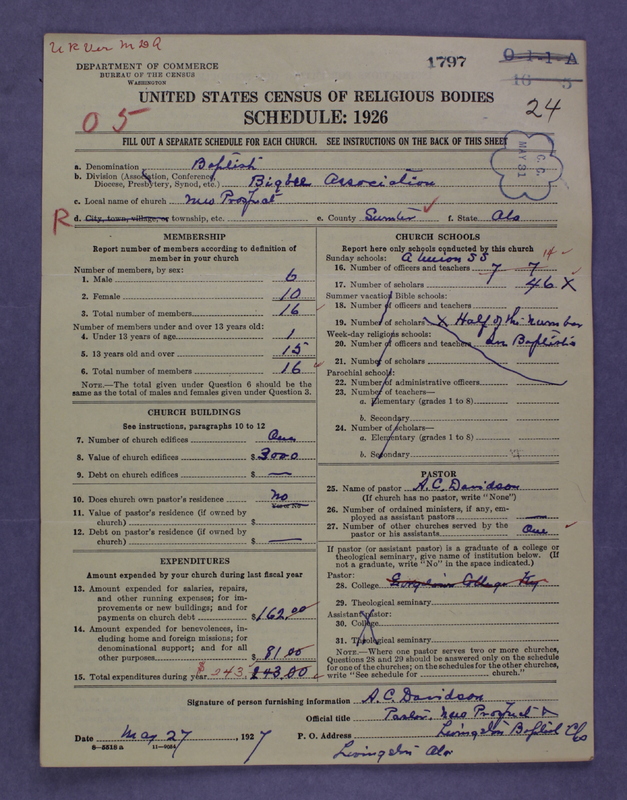 1797
O-1-1-A
16 5
24
DEPARTMENT OF COMMERCE
BUREAU OF THE CENSUS
WASHINGTON
UNITED STATES CENSUS OF RELIGIOUS BODIES
SCHEDULE: 1926
O 5
FILL OUT A SEPARATE SCHEDULE FOR EACH CHURCH. SEE INSTRUCTIONS ON THE BACK OF THIS SHEET
C. C.
MAY 31
a. Denomination Baptist
b. Division (Association, Conference, Diocese, Presbytery, Synod, etc.) Bigbee Association
c. Local name of church New Prospect
R d. City, town, village, or township, etc. e. County Sumter f. State Ala
MEMBERSHIP
Report number of members according to definition of
member in your church
Number of members, by sex:
1. Male 6
2. Female 10
3. Total number of members 16
Number of members under and over 13 years old:
4. Under 13 years of age 1
5. 13 years old and over 15
6. Total number of members 16
NOTE.—The total given under Question 6 should be the
same as the total of males and females given under Question 3.
CHURCH BUILDINGS
See instructions, paragraphs 10 to 12
7. Number of church edifices One
8. Value of church edifices $3000
9. Debt on church edifices $ —
10. Does church own pastor's residence No
11. Value of pastor's residence (if owned by
church) $
12. Debt on pastor's residence (if owned by
church) $ —
EXPENDITURES
Amount expended by your church during last fiscal year
13. Amount expended for salaries, repairs,
and other running expenses; for im-
provements or new buildings; and for
payments on church debt $162.00
14. Amount expended for benevolences, in-
cluding home and foreign missions; for
denominational support; and for all
other purposes $ 81.00
15. Total expenditures during year $ 243. 243.00
CHURCH SCHOOLS
Report here only schools conducted by this church
Sunday schools: A Union SS
16. Number of officers and teachers 7 7 14
17. Number of scholars 46 X
Summer vacation Bible schools:
18. Number of officers and teachers
19. Number of scholars X Half of this number
Week-day religious schools:
20. Number of officers and teachers are Baptists
21. Number of scholars
Parochial schools:
22. Number of administrative officers
23. Number of teachers—
a. Elementary (grades 1 to 8)
b. Secondary
24. Number of scholars—
a. Elementary (grades 1 to 8)
b. Secondary
PASTOR
25. Name of pastor A. C. Davidson
(If church has no pastor, write "None")
26. Number of ordained ministers, if any, em-
ployed as assistant pastors —
27. Number of other churches served by the
pastor or his assistants One
If pastor (or assistant pastor) is a graduate of a college or
theological seminary, give name of institution below. (If
not a graduate, write "No" in the space indicated.)
Pastor:
28. College Georgetown College Ky
29. Theological seminary
Assistant pastor:
30. College
31. Theological seminary
NOTE.—Where one pastor serves two or more churches,
Questions 28 and 29 should be answered only on the schedule
for one of the churches; on the schedules for the other churches,
write "See schedule for church."
Signature of person furnishing information A. C. Davidson
Official title Pastor, New Prospect &
Date May 27, 1927 P. O. Address Livingston Baptist Chs
8—5518 a 11—9034 Livingston Ala